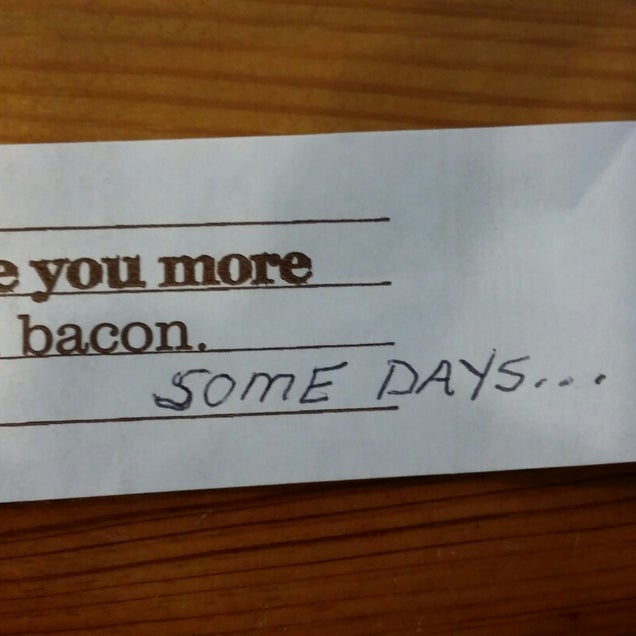 e you more
bacon.
SOME DAYS...